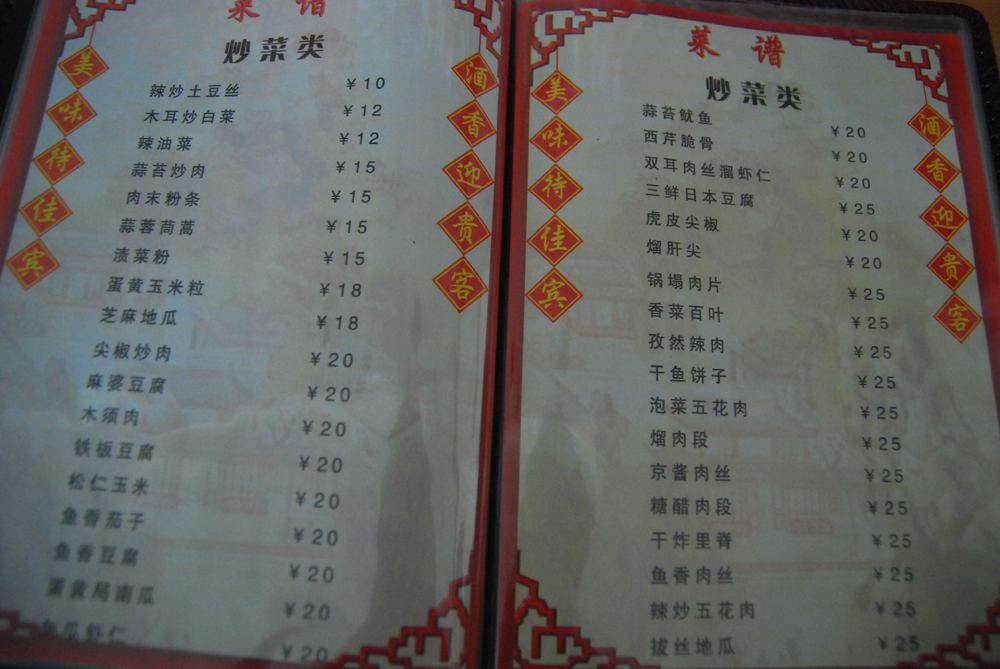 菜谱
炒菜类
美味待佳宾
酒香迎贵客
辣炒土豆丝 ¥10
木耳炒白菜 ¥12
辣油菜 ¥12
蒜苔炒肉 ¥15
肉末粉条 ¥15
蒜蓉茼蒿 ¥15
渍菜粉 ¥15
蛋黄玉米粒 ¥18
芝麻地瓜 ¥18
尖椒炒肉 ¥20
麻婆豆腐 ¥20
木须肉 ¥20
铁板豆腐 ¥20
松仁玉米 ¥20
鱼香茄子 ¥20
鱼香豆腐 ¥20
蛋黄局南瓜 ¥20
瓜虾仁 ¥20
菜谱
炒菜类
美味待佳宾
酒香迎贵客
蒜苔鱿鱼 ¥20
西芹脆骨 ¥20
双耳肉丝溜虾仁 ¥20
三鲜日本豆腐 ¥25
虎皮尖椒 ¥20
熘肝尖 ¥20
锅塌肉片 ¥25
香菜百叶 ¥25
孜然辣肉 ¥25
干鱼饼子 ¥25
泡菜五花肉 ¥25
熘肉段 ¥25
京酱肉丝 ¥25
糖醋肉段 ¥25
干炸里脊 ¥25
鱼香肉丝 ¥25
辣炒五花肉 ¥25
拔丝地瓜 ¥25